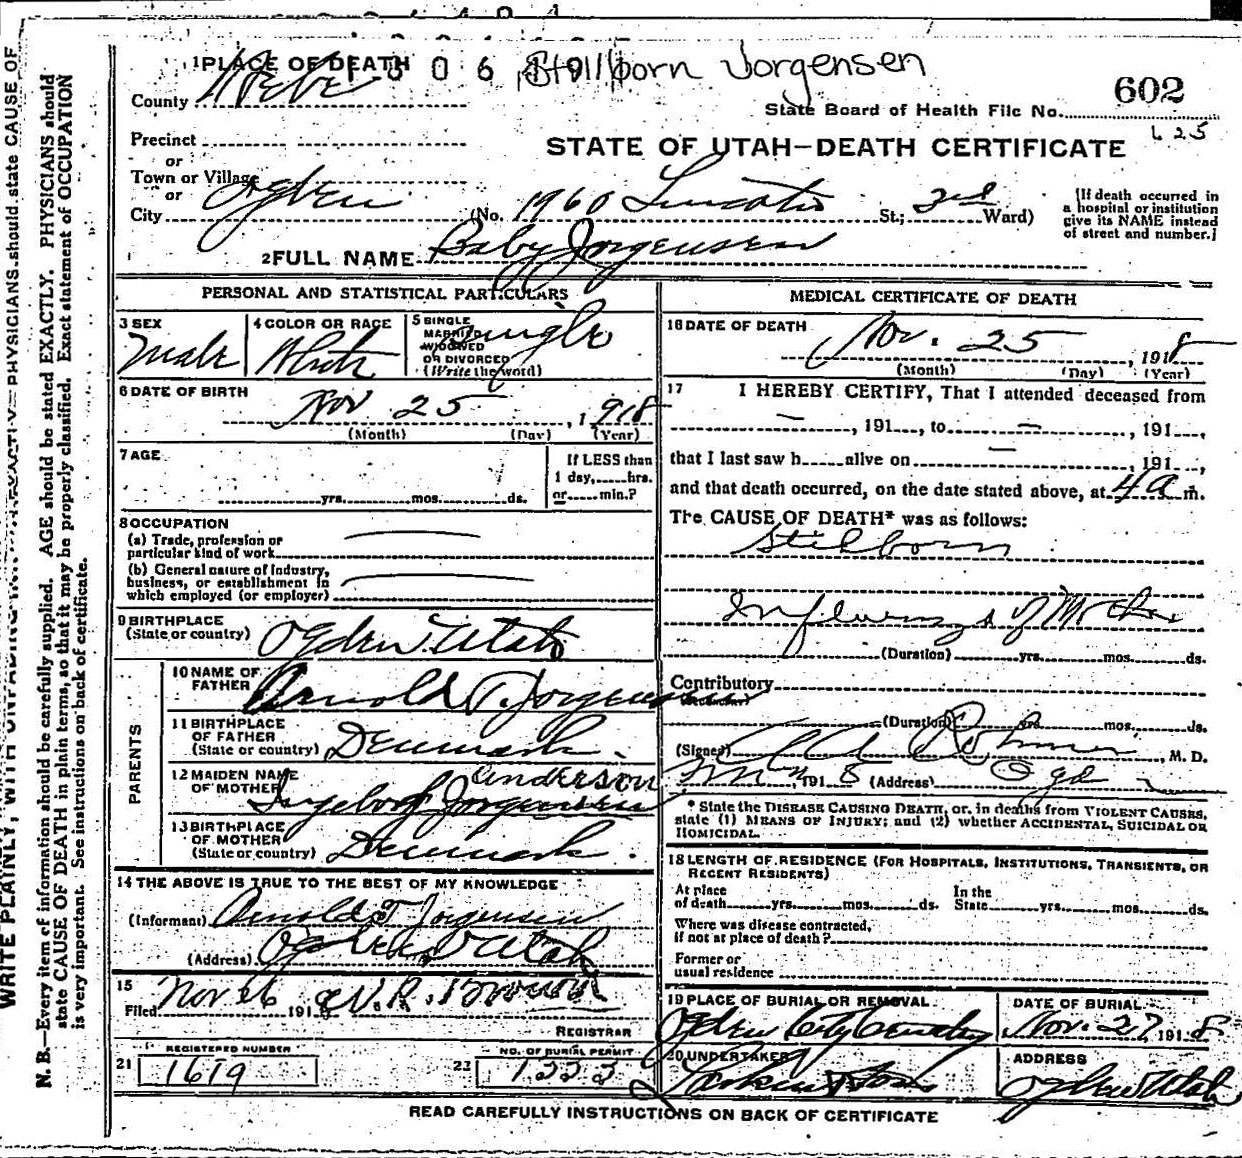 Stillborn Jorgensen
1 PLACE OF DEATH
County Weber
State Board of Health File No. 602
625
Precinct
or
STATE OF UTAH—DEATH CERTIFICATE
Town or Village
or
City Ogden (No. 1960 Lincoln St.; 3rd Ward)
[If death occurred in
a hospital or institution
give its NAME instead
of street and number.]
2 FULL NAME Baby Jorgensen
PERSONAL AND STATISTICAL PARTICULARS
3 SEX Male
4 COLOR OR RACE White
5 SINGLE
MARRIED
WIDOWED
OR DIVORCED
(Write the word) Single
6 DATE OF BIRTH
Nov 25, 1918
(Month) (Day) (Year)
7 AGE
yrs. mos. ds.
If LESS than
1 day, hrs.
or min.?
8 OCCUPATION
(a) Trade, profession or
particular kind of work
(b) General nature of industry,
business, or establishment in
which employed (or employer)
9 BIRTHPLACE
(State or country) Ogden Utah
PARENTS
10 NAME OF
FATHER Arnold T. Jorgensen
11 BIRTHPLACE
OF FATHER
(State or country) Denmark.
12 MAIDEN NAME
OF MOTHER Anderson
Ingeborg Jorgensen
13 BIRTHPLACE
OF MOTHER
(State or country) Denmark.
14 THE ABOVE IS TRUE TO THE BEST OF MY KNOWLEDGE
(Informant) Arnold T Jorgensen
(Address) Ogden Utah
15
Filed Nov 26 1918 W. R. Brown
REGISTRAR
21 REGISTERED NUMBER
1619
22 NO. OF BURIAL PERMIT
1333
MEDICAL CERTIFICATE OF DEATH
16 DATE OF DEATH
Nov. 25, 1918
(Month) (Day) (Year)
17 I HEREBY CERTIFY, That I attended deceased from
—, 191 , to —, 191 ,
that I last saw h alive on —, 191 ,
and that death occurred, on the date stated above, at 4 a m.
The CAUSE OF DEATH* was as follows:
Stillborn
Influenza of Mother
(Duration) yrs. mos. ds.
Contributory
(Duration) mos. ds.
(Signed) M. D.
, 1918 (Address) Ogden
* State the DISEASE CAUSING DEATH, or, in deaths from VIOLENT CAUSES,
state (1) MEANS OF INJURY; and (2) whether ACCIDENTAL, SUICIDAL OR
HOMICIDAL.
18 LENGTH OF RESIDENCE (FOR HOSPITALS, INSTITUTIONS, TRANSIENTS, OR
RECENT RESIDENTS)
At place
of death yrs. mos. ds.
In the
State yrs. mos. ds.
Where was disease contracted,
if not at place of death?
Former or
usual residence
19 PLACE OF BURIAL OR REMOVAL
Ogden City Cemetery
DATE OF BURIAL
Nov. 27, 1918
20 UNDERTAKER
Larkin & Sons
ADDRESS
Ogden Utah
READ CAREFULLY INSTRUCTIONS ON BACK OF CERTIFICATE
N. B.—Every item of information should be carefully supplied. AGE should be stated EXACTLY. PHYSICIANS should
state CAUSE OF DEATH in plain terms, so that it may be properly classified. Exact statement of OCCUPATION
is very important. See instructions on back of certificate.